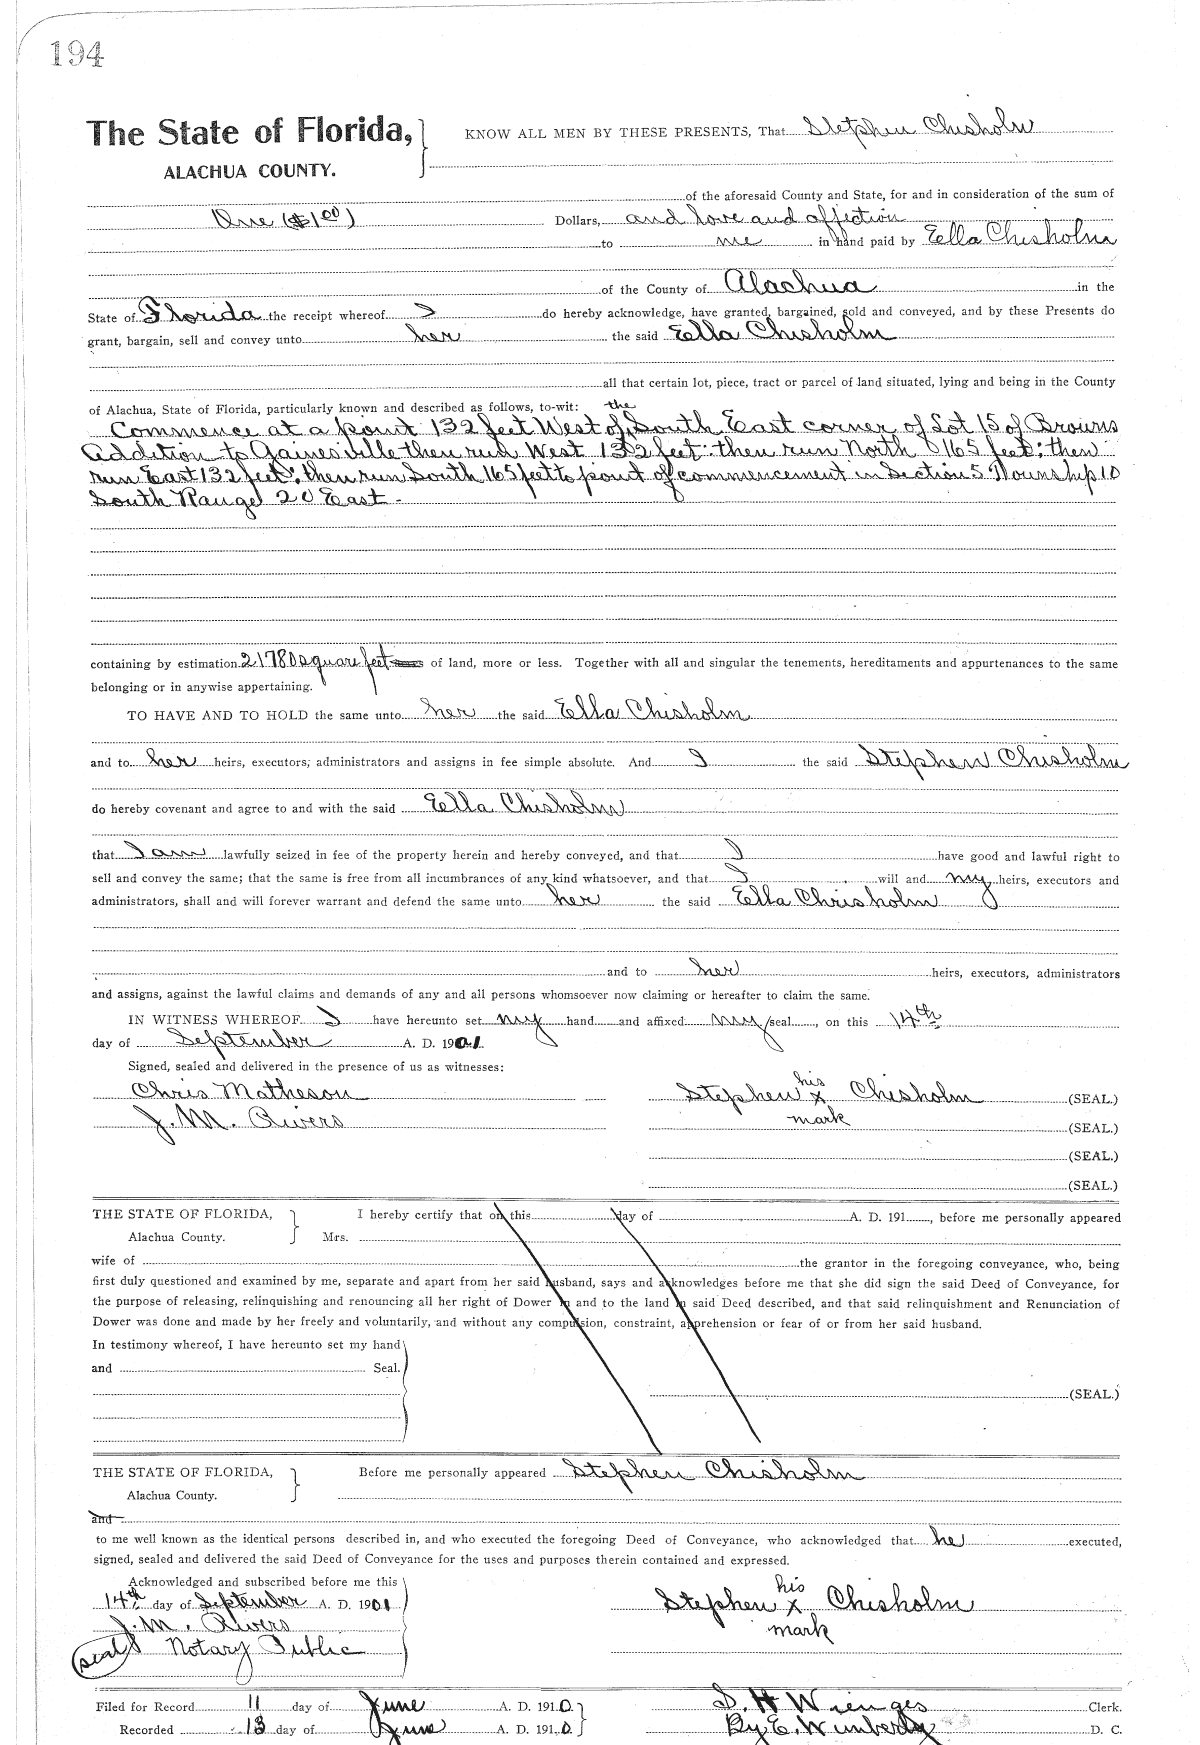 194
The State of Florida, KNOW ALL MEN BY THESE PRESENTS, That Stephen Chisholm
ALACHUA COUNTY.
of the aforesaid County and State, for and in consideration of the sum of
One ($1.00) Dollars, and love and affection
to me in hand paid by Ella Chisholm
of the County of Alachua in the
State of Florida the receipt whereof I do hereby acknowledge, have granted, bargained, sold and conveyed, and by these Presents do
grant, bargain, sell and convey unto her the said Ella Chisholm
all that certain lot, piece, tract or parcel of land situated, lying and being in the County
of Alachua, State of Florida, particularly known and described as follows, to-wit:
Commence at a point 132 feet West of the South East corner of Lot 15 of Browns
Addition to Gainesville then run West 132 feet: then run North 165 feet: then
run East 132 feet: then run South 165 feet to point of commencement in Section 5 Township 10
South Range 20 East -
containing by estimation 21780 square feet of land, more or less. Together with all and singular the tenements, hereditaments and appurtenances to the same
belonging or in anywise appertaining.
TO HAVE AND TO HOLD the same unto her the said Ella Chisholm
and to her heirs, executors, administrators and assigns in fee simple absolute. And I the said Stephen Chisholm
do hereby covenant and agree to and with the said Ella Chisholm
that I am lawfully seized in fee of the property herein and hereby conveyed, and that I have good and lawful right to
sell and convey the same; that the same is free from all incumbrances of any kind whatsoever, and that I will and my heirs, executors and
administrators, shall and will forever warrant and defend the same unto her the said Ella Chrisholm
and to her heirs, executors, administrators
and assigns, against the lawful claims and demands of any and all persons whomsoever now claiming or hereafter to claim the same.
IN WITNESS WHEREOF I have hereunto set my hand and affixed my seal, on this 14th
day of September A. D. 1901
Signed, sealed and delivered in the presence of us as witnesses:
Chris Matheson Stephen his x mark Chisholm (SEAL.)
J. M. Rivers (SEAL.)
(SEAL.)
(SEAL.)
THE STATE OF FLORIDA, I hereby certify that on this day of A. D. 191 , before me personally appeared
Alachua County. Mrs.
wife of the grantor in the foregoing conveyance, who, being
first duly questioned and examined by me, separate and apart from her said husband, says and acknowledges before me that she did sign the said Deed of Conveyance, for
the purpose of releasing, relinquishing and renouncing all her right of Dower in and to the land in said Deed described, and that said relinquishment and Renunciation of
Dower was done and made by her freely and voluntarily, and without any compulsion, constraint, apprehension or fear of or from her said husband.
In testimony whereof, I have hereunto set my hand
and Seal.
(SEAL.)
THE STATE OF FLORIDA, Before me personally appeared Stephen Chisholm
Alachua County.
and
to me well known as the identical persons described in, and who executed the foregoing Deed of Conveyance, who acknowledged that he executed,
signed, sealed and delivered the said Deed of Conveyance for the uses and purposes therein contained and expressed.
Acknowledged and subscribed before me this
14th day of September A. D. 1901 Stephen his x mark Chisholm
J. M. Rivers
(seal) Notary Public
Filed for Record 11 day of June A. D. 1910 S. H Wienges Clerk.
Recorded 13 day of June A. D. 1910 By E. Wimberly D. C.